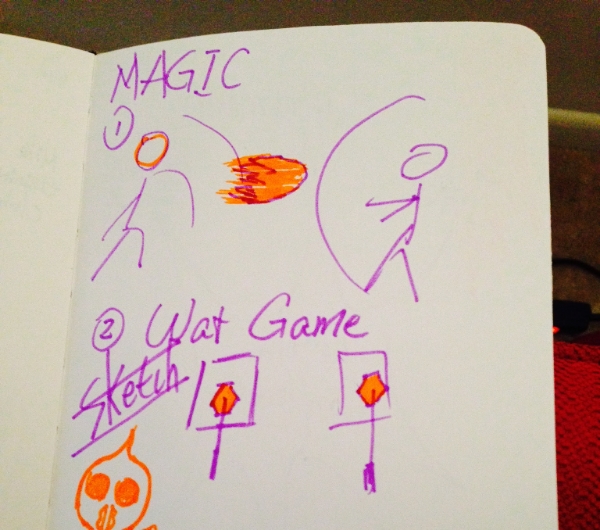 MAGIC
①
② Wat Game
Sketch